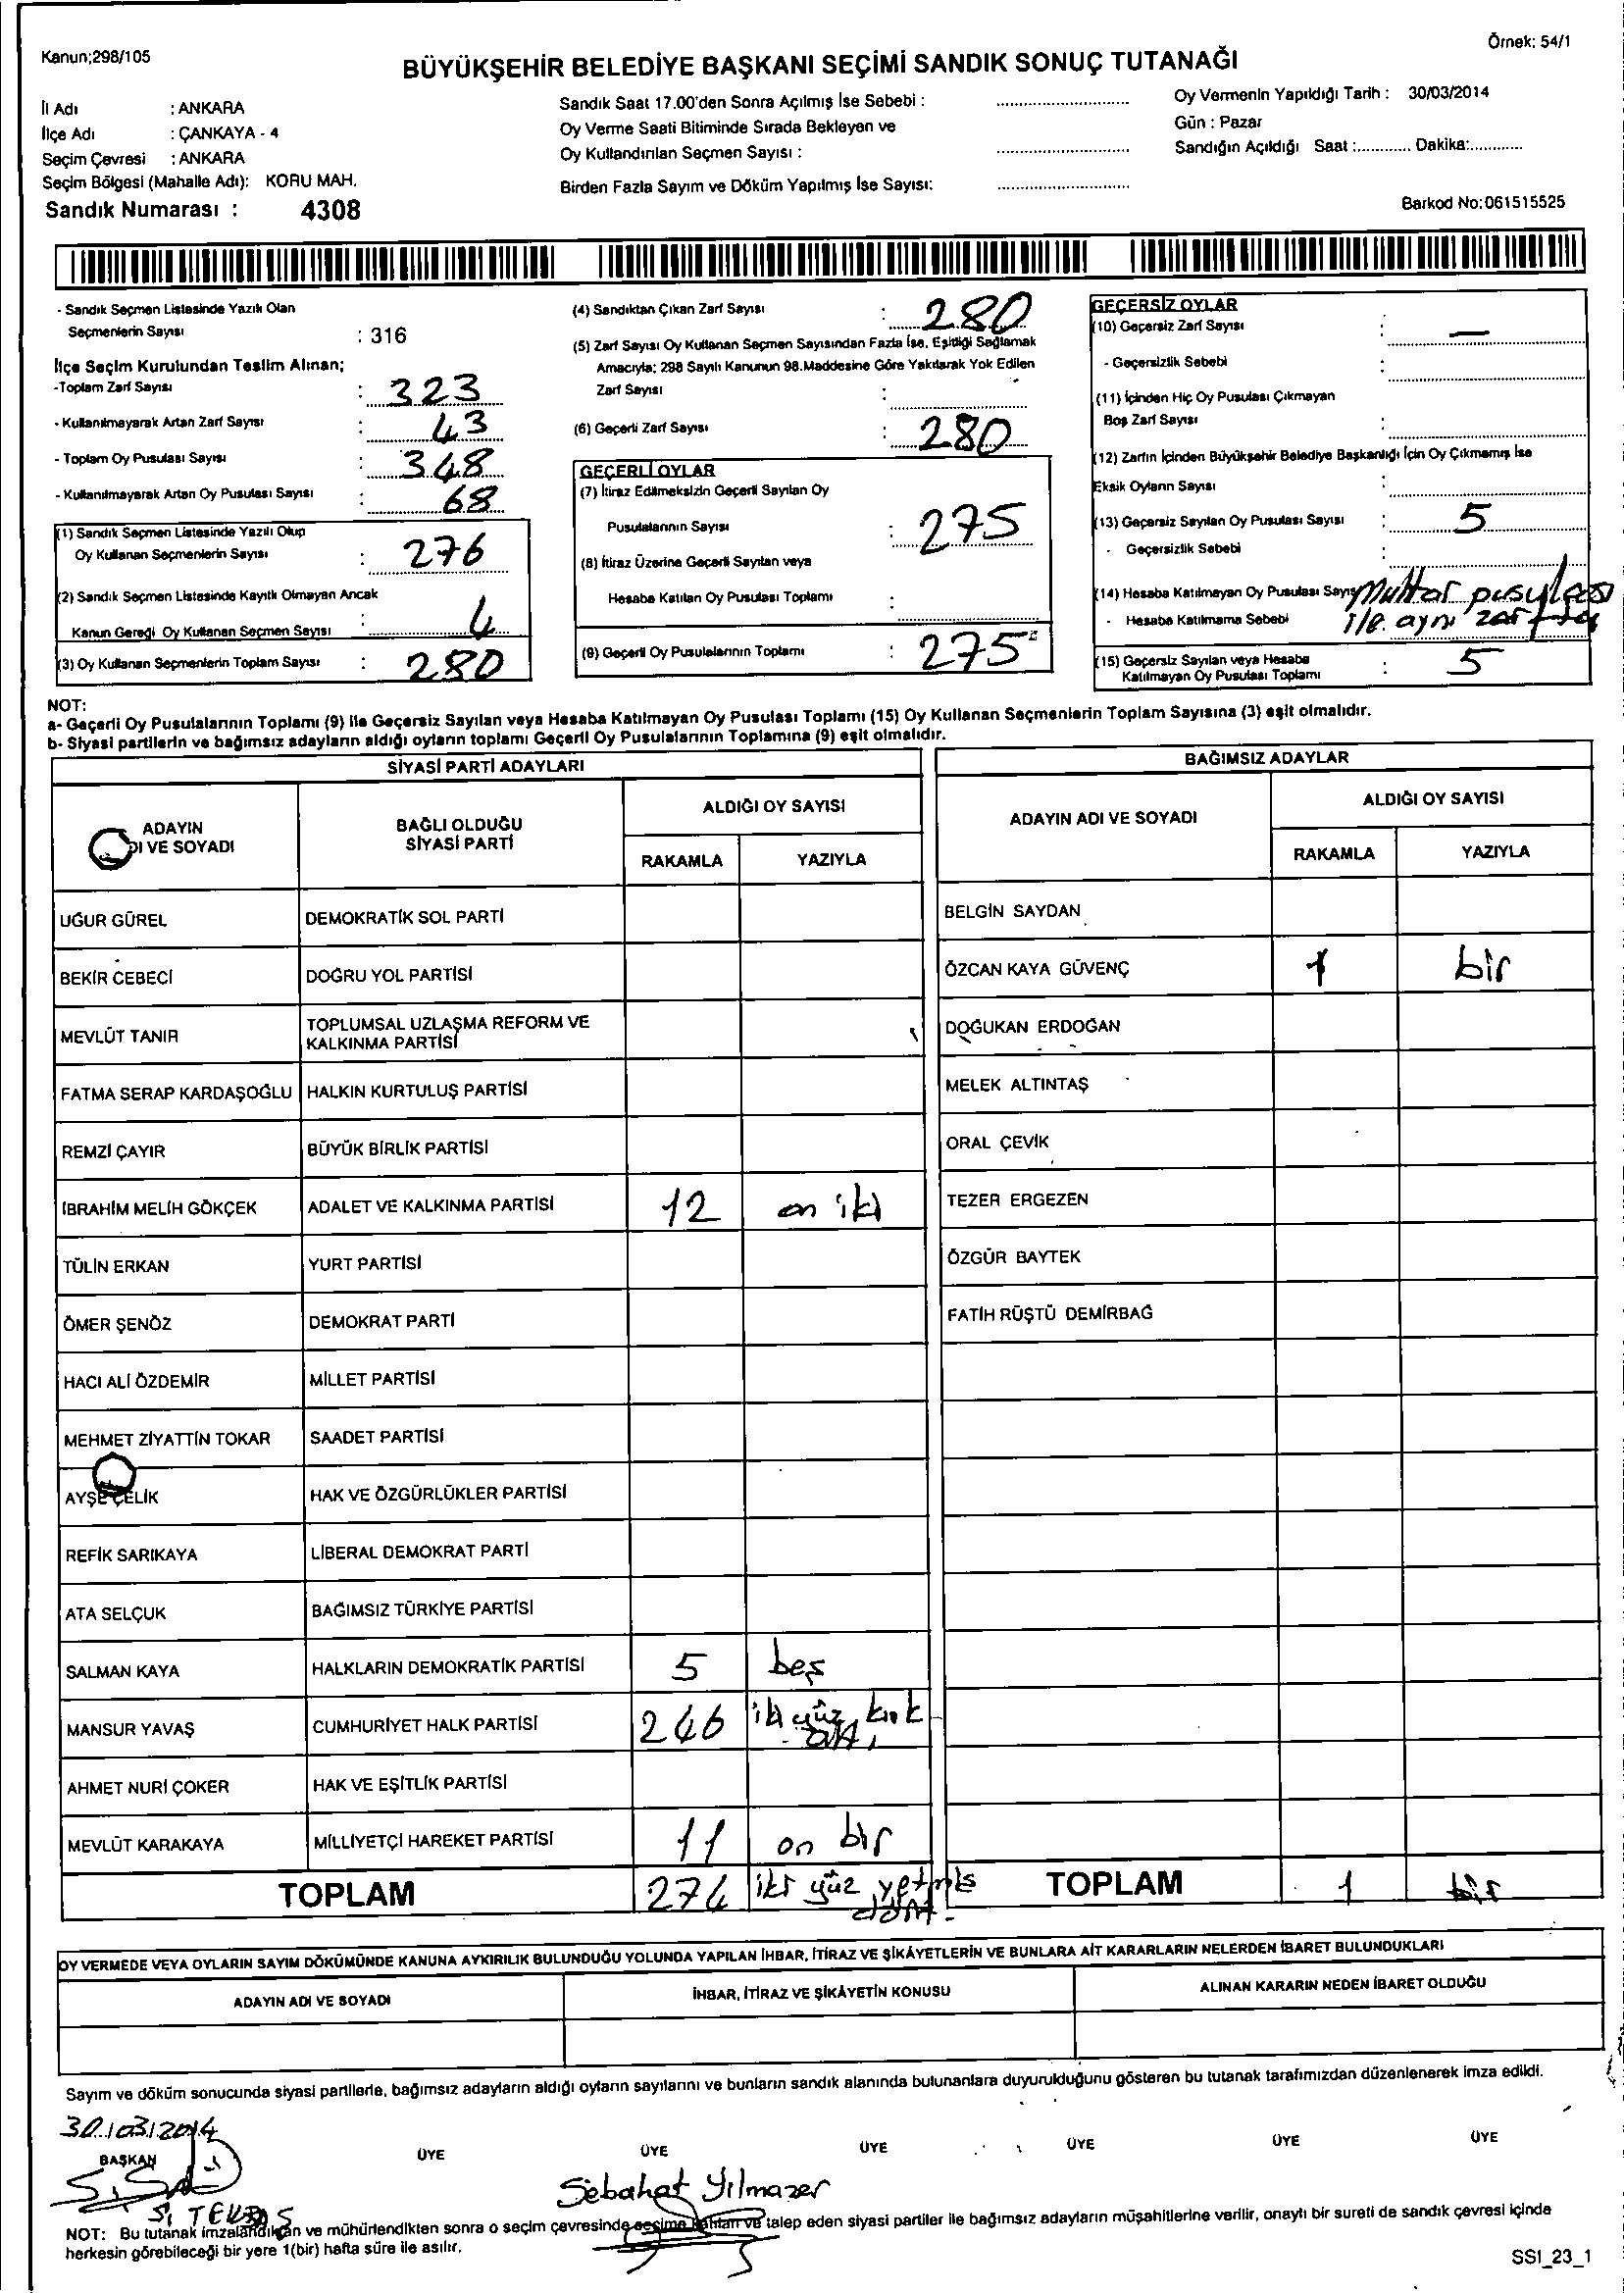 Kanun;298/105
Örnek: 54/1
BÜYÜKŞEHİR BELEDİYE BAŞKANI SEÇİMİ SANDIK SONUÇ TUTANAĞI
İl Adı : ANKARA
İlçe Adı : ÇANKAYA - 4
Seçim Çevresi : ANKARA
Seçim Bölgesi (Mahalle Adı): KORU MAH.
Sandık Numarası : 4308
Sandık Saat 17.00'den Sonra Açılmış İse Sebebi :
Oy Verme Saati Bitiminde Sırada Bekleyen ve
Oy Kullandırılan Seçmen Sayısı :
Birden Fazla Sayım ve Döküm Yapılmış İse Sayısı:
Oy Vermenin Yapıldığı Tarih : 30/03/2014
Gün : Pazar
Sandığın Açıldığı Saat :............ Dakika:............
Barkod No:061515525
- Sandık Seçmen Listesinde Yazılı Olan
Seçmenlerin Sayısı : 316
İlçe Seçim Kurulundan Teslim Alınan;
-Toplam Zarf Sayısı : 323
- Kullanılmayarak Artan Zarf Sayısı : 43
- Toplam Oy Pusulası Sayısı : 348
- Kullanılmayarak Artan Oy Pusulası Sayısı : 68
(1) Sandık Seçmen Listesinde Yazılı Olup
Oy Kullanan Seçmenlerin Sayısı : 276
(2) Sandık Seçmen Listesinde Kayıtlı Olmayan Ancak
Kanun Gereği Oy Kullanan Seçmen Sayısı : 4
(3) Oy Kullanan Seçmenlerin Toplam Sayısı : 280
(4) Sandıktan Çıkan Zarf Sayısı : 280
(5) Zarf Sayısı Oy Kullanan Seçmen Sayısından Fazla İse, Eşitliği Sağlamak
Amacıyla; 298 Sayılı Kanunun 98.Maddesine Göre Yakılarak Yok Edilen
Zarf Sayısı :
(6) Geçerli Zarf Sayısı : 280
GEÇERLİ OYLAR
(7) İtiraz Edilmeksizin Geçerli Sayılan Oy
Pusulalarının Sayısı : 275
(8) İtiraz Üzerine Geçerli Sayılan veya
Hesaba Katılan Oy Pusulası Toplamı :
(9) Geçerli Oy Pusulalarının Toplamı : 275
GEÇERSİZ OYLAR
(10) Geçersiz Zarf Sayısı : —
- Geçersizlik Sebebi :
(11) İçinden Hiç Oy Pusulası Çıkmayan
Boş Zarf Sayısı :
(12) Zarfın İçinden Büyükşehir Belediye Başkanlığı İçin Oy Çıkmamış İse
Eksik Oyların Sayısı :
(13) Geçersiz Sayılan Oy Pusulası Sayısı : 5
- Geçersizlik Sebebi :
(14) Hesaba Katılmayan Oy Pusulası Sayısı Muhtar pusulası
- Hesaba Katılmama Sebebi ile aynı zarfta
(15) Geçersiz Sayılan veya Hesaba
Katılmayan Oy Pusulası Toplamı : 5
NOT:
a- Geçerli Oy Pusulalarının Toplamı (9) ile Geçersiz Sayılan veya Hesaba Katılmayan Oy Pusulası Toplamı (15) Oy Kullanan Seçmenlerin Toplam Sayısına (3) eşit olmalıdır.
b- Siyasi partilerin ve bağımsız adayların aldığı oyların toplamı Geçerli Oy Pusulalarının Toplamına (9) eşit olmalıdır.
SİYASİ PARTİ ADAYLARI
ADAYIN
DI VE SOYADI
BAĞLI OLDUĞU
SİYASİ PARTİ
ALDIĞI OY SAYISI
RAKAMLA YAZIYLA
UĞUR GÜREL DEMOKRATİK SOL PARTİ
BEKİR CEBECİ DOĞRU YOL PARTİSİ
MEVLÜT TANIR TOPLUMSAL UZLAŞMA REFORM VE
KALKINMA PARTİSİ
FATMA SERAP KARDAŞOĞLU HALKIN KURTULUŞ PARTİSİ
REMZİ ÇAYIR BÜYÜK BİRLİK PARTİSİ
İBRAHİM MELİH GÖKÇEK ADALET VE KALKINMA PARTİSİ 12 on iki
TÜLİN ERKAN YURT PARTİSİ
ÖMER ŞENÖZ DEMOKRAT PARTİ
HACI ALİ ÖZDEMİR MİLLET PARTİSİ
MEHMET ZİYATTİN TOKAR SAADET PARTİSİ
AYŞE ÇELİK HAK VE ÖZGÜRLÜKLER PARTİSİ
REFİK SARIKAYA LİBERAL DEMOKRAT PARTİ
ATA SELÇUK BAĞIMSIZ TÜRKİYE PARTİSİ
SALMAN KAYA HALKLARIN DEMOKRATİK PARTİSİ 5 beş
MANSUR YAVAŞ CUMHURİYET HALK PARTİSİ 246 iki yüz kırk
altı
AHMET NURİ ÇOKER HAK VE EŞİTLİK PARTİSİ
MEVLÜT KARAKAYA MİLLİYETÇİ HAREKET PARTİSİ 11 on bir
TOPLAM 274 iki yüz yetmiş
dört
BAĞIMSIZ ADAYLAR
ADAYIN ADI VE SOYADI
ALDIĞI OY SAYISI
RAKAMLA YAZIYLA
BELGİN SAYDAN
ÖZCAN KAYA GÜVENÇ 1 bir
DOĞUKAN ERDOĞAN
MELEK ALTINTAŞ
ORAL ÇEVİK
TEZER ERGEZEN
ÖZGÜR BAYTEK
FATİH RÜŞTÜ DEMİRBAĞ
TOPLAM 1 bir
OY VERMEDE VEYA OYLARIN SAYIM DÖKÜMÜNDE KANUNA AYKIRILIK BULUNDUĞU YOLUNDA YAPILAN İHBAR, İTİRAZ VE ŞİKÂYETLERİN VE BUNLARA AİT KARARLARIN NELERDEN İBARET BULUNDUKLARI
ADAYIN ADI VE SOYADI İHBAR, İTİRAZ VE ŞİKÂYETİN KONUSU ALINAN KARARIN NEDEN İBARET OLDUĞU
Sayım ve döküm sonucunda siyasi partilerle, bağımsız adayların aldığı oyların sayılarını ve bunların sandık alanında bulunanlara duyurulduğunu gösteren bu tutanak tarafımızdan düzenlenerek imza edildi.
30/03/2014
BAŞKAN ÜYE ÜYE ÜYE ÜYE ÜYE ÜYE
Sebahat Yılmazer
S. TEKBAŞ
NOT: Bu tutanak imzalandıktan ve mühürlendikten sonra o seçim çevresinde seçime katılan ve talep eden siyasi partiler ile bağımsız adayların müşahitlerine verilir, onaylı bir sureti de sandık çevresi içinde
herkesin görebileceği bir yere 1(bir) hafta süre ile asılır.
SSI_23_1